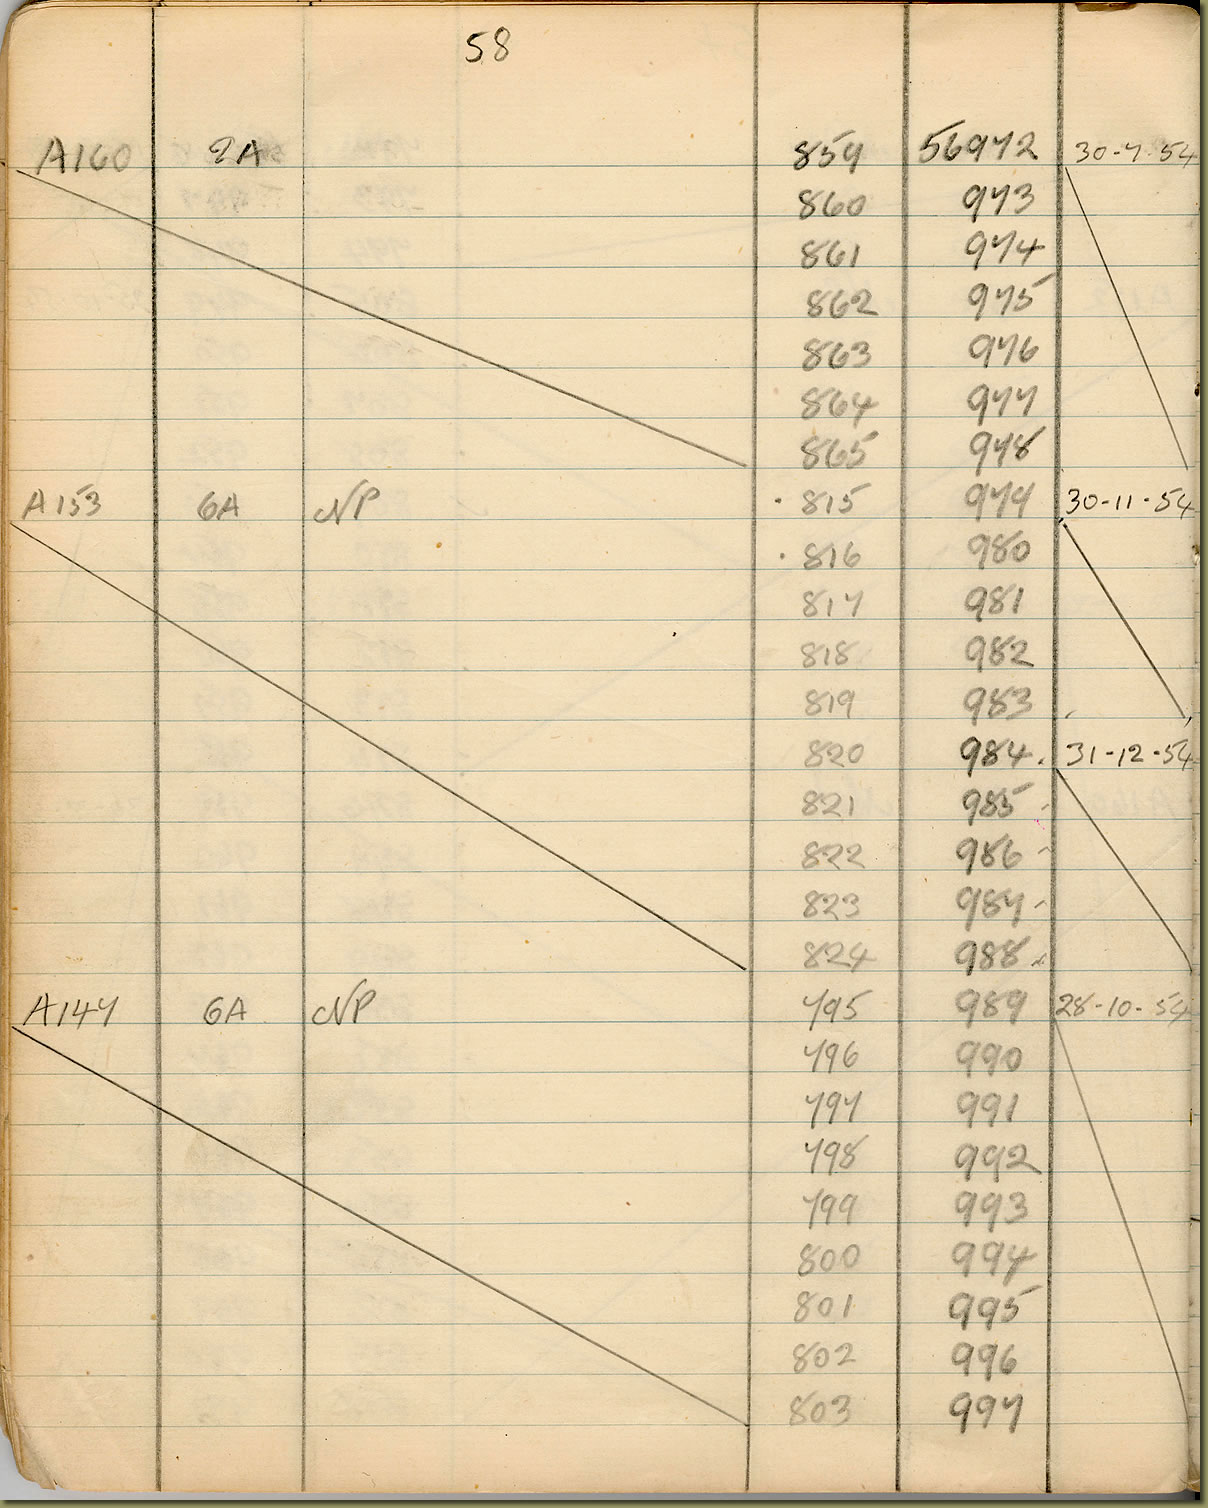 58
A160 2A 859 56972 30-7-54
860 973
861 974
862 975
863 976
864 977
865 978
A153 6A NP · 815 979 30-11-54
· 816 980
817 981
818 982
819 983
820 984. 31-12-54
821 985
822 986
823 987
824 988
A147 6A NP 795 989 28-10-54
796 990
797 991
798 992
799 993
800 994
801 995
802 996
803 997